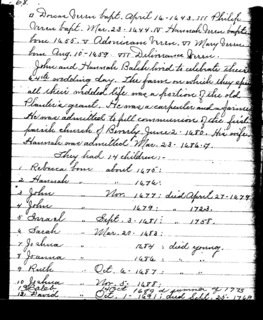 68.
Dorcas Iren bapt. April 16-1643. III Philip
Iren bapt. Mar. 23-1644. IV Hannah Iren bapt.
born 1655. V Adoniram Iren. VI Mary Iren
born Aug. 10-1659. VII Deliverance Iren.
John and Hannah Balch lived to celebrate their
wedding day. The farm on which they spent
all their wedded life was a portion of the old
Planter's grant. He was a carpenter and a farmer
He was admitted to full communion of the first
parish church of Beverly June 2-1680. His wife
Hannah was admitted Mar. 23-1686-7.
They had 14 children:-
1 Rebecca born about 1675:
2 Hannah " " 1676:
3 John " Nov. 1677: died April 27-1679
4 John " 1679: " " 1723.
5 Israel " Sept. 3-1681: " 1758.
6 Sarah " Mar. 20-1683:
7 Joshua " 1684: died young.
8 Joanna " 1686: " "
9 Ruth " Oct. 4-1687: "
10 Joshua " Nov. 5-1688:
11 Caleb " 1689
12 David " Oct. 1691: died Sept. 25-1769